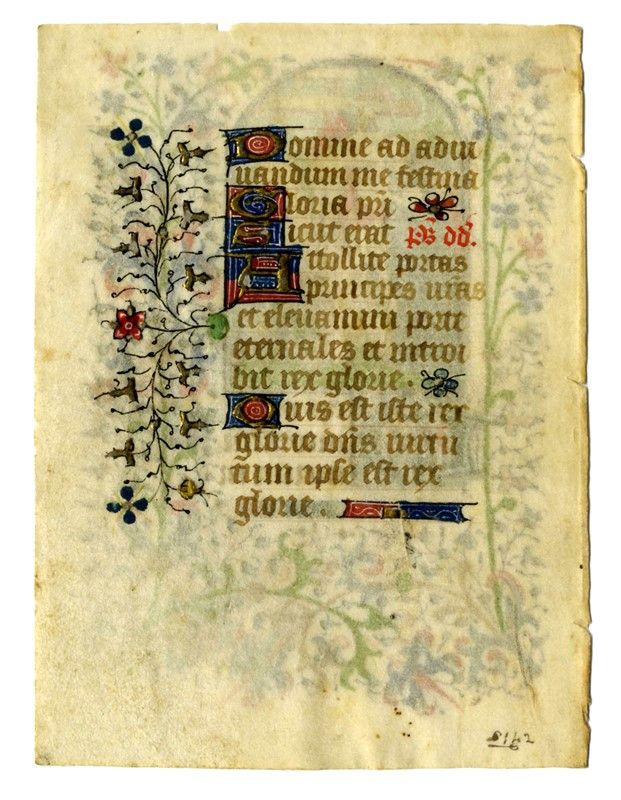 Domine ad adiu
uandum me festina
Gloria pri
Sicut erat ps dd.
Attollite portas
principes uras
et eleuamini porte
eternales et introi
bit rex glorie.
Quis est iste rex
glorie dns uirtu
tum ipse est rex
glorie.